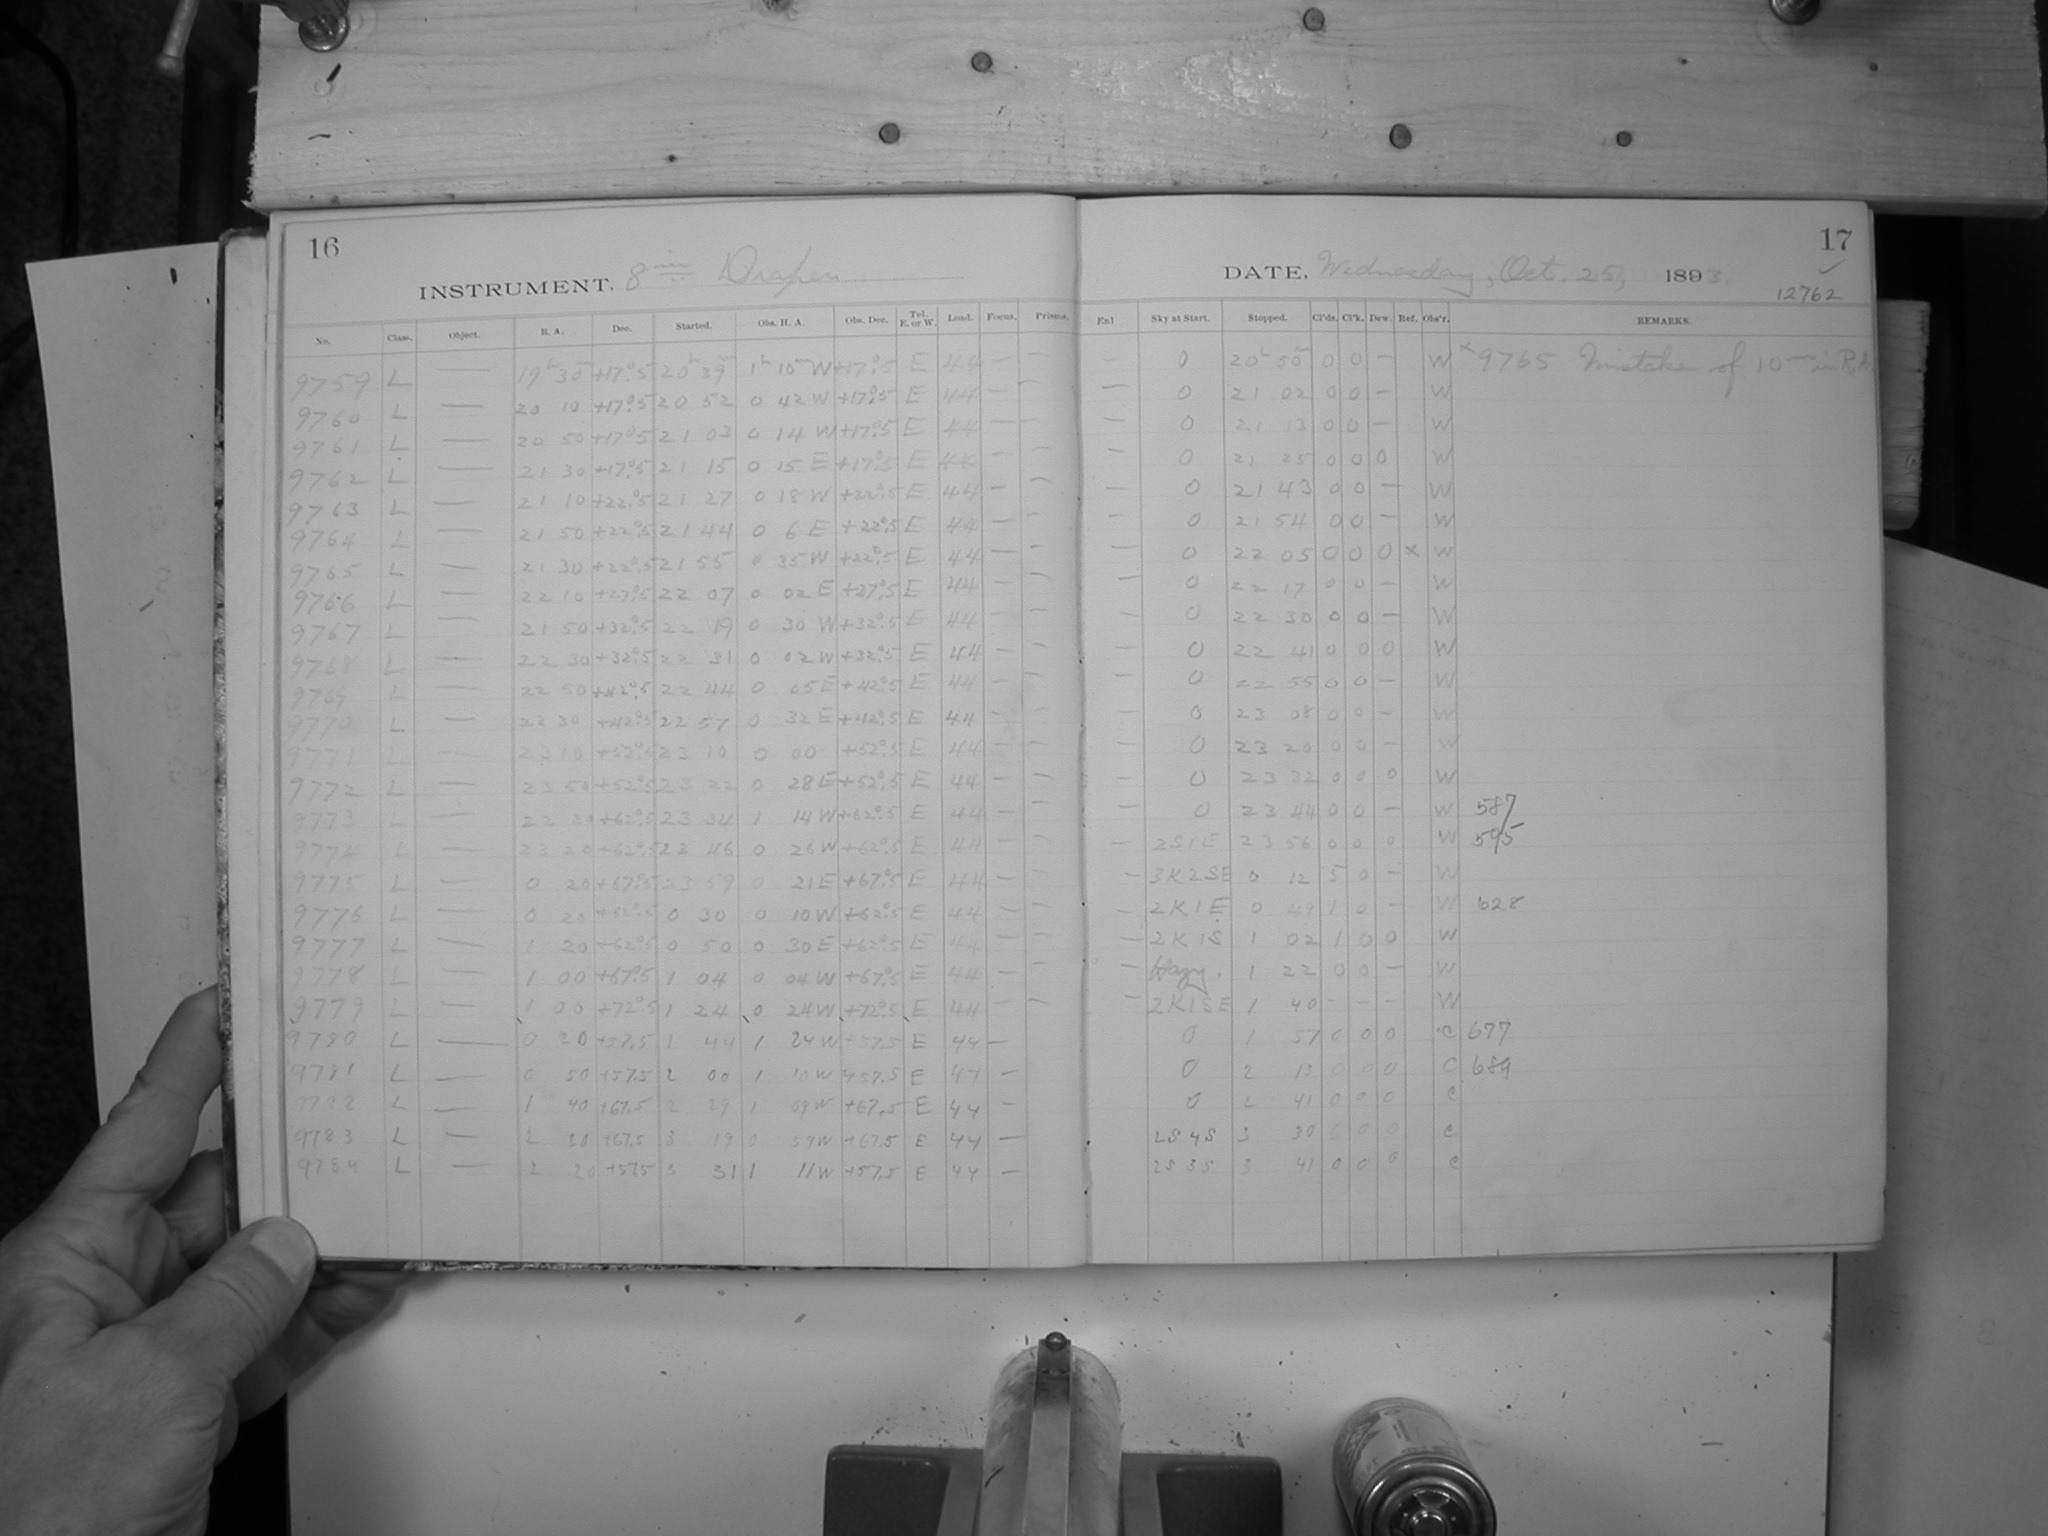 16
17
INSTRUMENT. 8 in Draper
DATE, Wednesday, Oct. 25, 1893.
12762
No. Class. Object. R. A. Dec. Started. Obs. H. A. Obs. Dec. Tel. E. or W. Load. Focus. Prisms. Enl Sky at Start. Stopped. Cl'ds. Cl'k. Dew. Ref. Obs'r. REMARKS.
9759 L — 19h 30m +17°.5 20h 39m 1h 10m W +17°.5 E 44 — — — 0 20h 50m 0 0 — W × 9765 Mistake of 10m in R.A.
9760 L — 20 10 +17°.5 20 52 0 42 W +17°.5 E 44 — — — 0 21 02 0 0 — W
9761 L — 20 50 +17°.5 21 03 0 14 W +17°.5 E 44 — — — 0 21 13 0 0 — W
9762 L — 21 30 +17°.5 21 15 0 15 E +17°.5 E 44 — — — 0 21 25 0 0 0 W
9763 L — 21 10 +22°.5 21 27 0 18 W +22°.5 E 44 — — — 0 21 43 0 0 — W
9764 L — 21 50 +22°.5 21 44 0 6 E +22°.5 E 44 — — — 0 21 54 0 0 — W
9765 L — 21 30 +22°.5 21 55 0 35 W +22°.5 E 44 — — — 0 22 05 0 0 0 × W
9766 L — 22 10 +27°.5 22 07 0 02 E +27°.5 E 44 — — — 0 22 17 0 0 — W
9767 L — 21 50 +32°.5 22 19 0 30 W +32°.5 E 44 — — — 0 22 30 0 0 — W
9768 L — 22 30 +32°.5 22 31 0 02 W +32°.5 E 44 — — — 0 22 41 0 0 0 W
9769 L — 22 50 +42°.5 22 44 0 05 E +42°.5 E 44 — — — 0 22 55 0 0 — W
9770 L — 22 30 +42°.5 22 57 0 32 E +42°.5 E 44 — — — 0 23 08 0 0 — W
9771 L — 23 10 +52°.5 23 10 0 00 +52°.5 E 44 — — — 0 23 20 0 0 — W
9772 L — 23 50 +52°.5 23 22 0 28 E +52°.5 E 44 — — — 0 23 32 0 0 0 W
9773 L — 22 20 +62°.5 23 34 1 14 W +62°.5 E 44 — — — 0 23 44 0 0 — W 587
9774 L — 23 20 +62°.5 23 46 0 26 W +62°.5 E 44 — — — 2S1E 23 56 0 0 0 W 595
9775 L — 0 20 +67°.5 23 59 0 21 E +67°.5 E 44 — — — 3K2SE 0 12 5 0 — W
9776 L — 0 20 +62°.5 0 30 0 10 W +62°.5 E 44 — — — 2K1E 0 49 1 0 — W 628
9777 L — 1 20 +62°.5 0 50 0 30 E +62°.5 E 44 — — — 2K1S 1 02 1 0 0 W
9778 L — 1 00 +67°.5 1 04 0 04 W +67°.5 E 44 — — — Hazy. 1 22 0 0 — W
9779 L — 1 00 +72°.5 1 24 0 24 W +72°.5 E 44 — — — 2K1SE 1 40 — — — W
9780 L — 0 20 +57.5 1 44 1 24 W +57.5 E 44 — 0 1 57 0 0 0 C 677
9781 L — 0 50 +57.5 2 00 1 10 W +57.5 E 44 — 0 2 13 0 0 0 C 689
9782 L — 1 40 +67.5 2 29 1 09 W +67.5 E 44 — 0 2 41 0 0 0 C
9783 L — 2 20 +67.5 3 19 0 59 W +67.5 E 44 — 2S 4S 3 30 0 0 0 C
9784 L — 2 20 +57.5 3 31 1 11 W +57.5 E 44 — 2S 3S 3 41 0 0 0 C